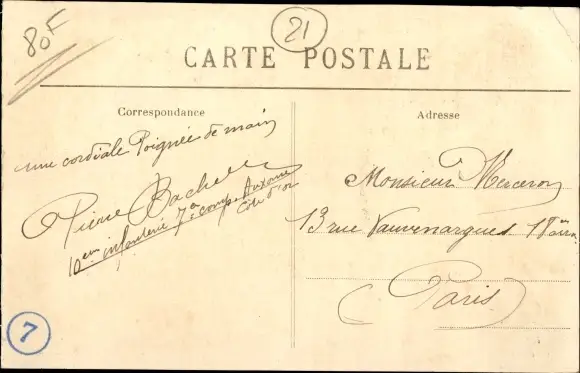 80F
21
CARTE POSTALE
Correspondance
une cordiale Poignée de main
Pierre Bachelle
10em infanterie 7e compe Auxonne
Côte d'or
7
Adresse
Monsieur Merceron
13 rue Vauvenargues
Paris